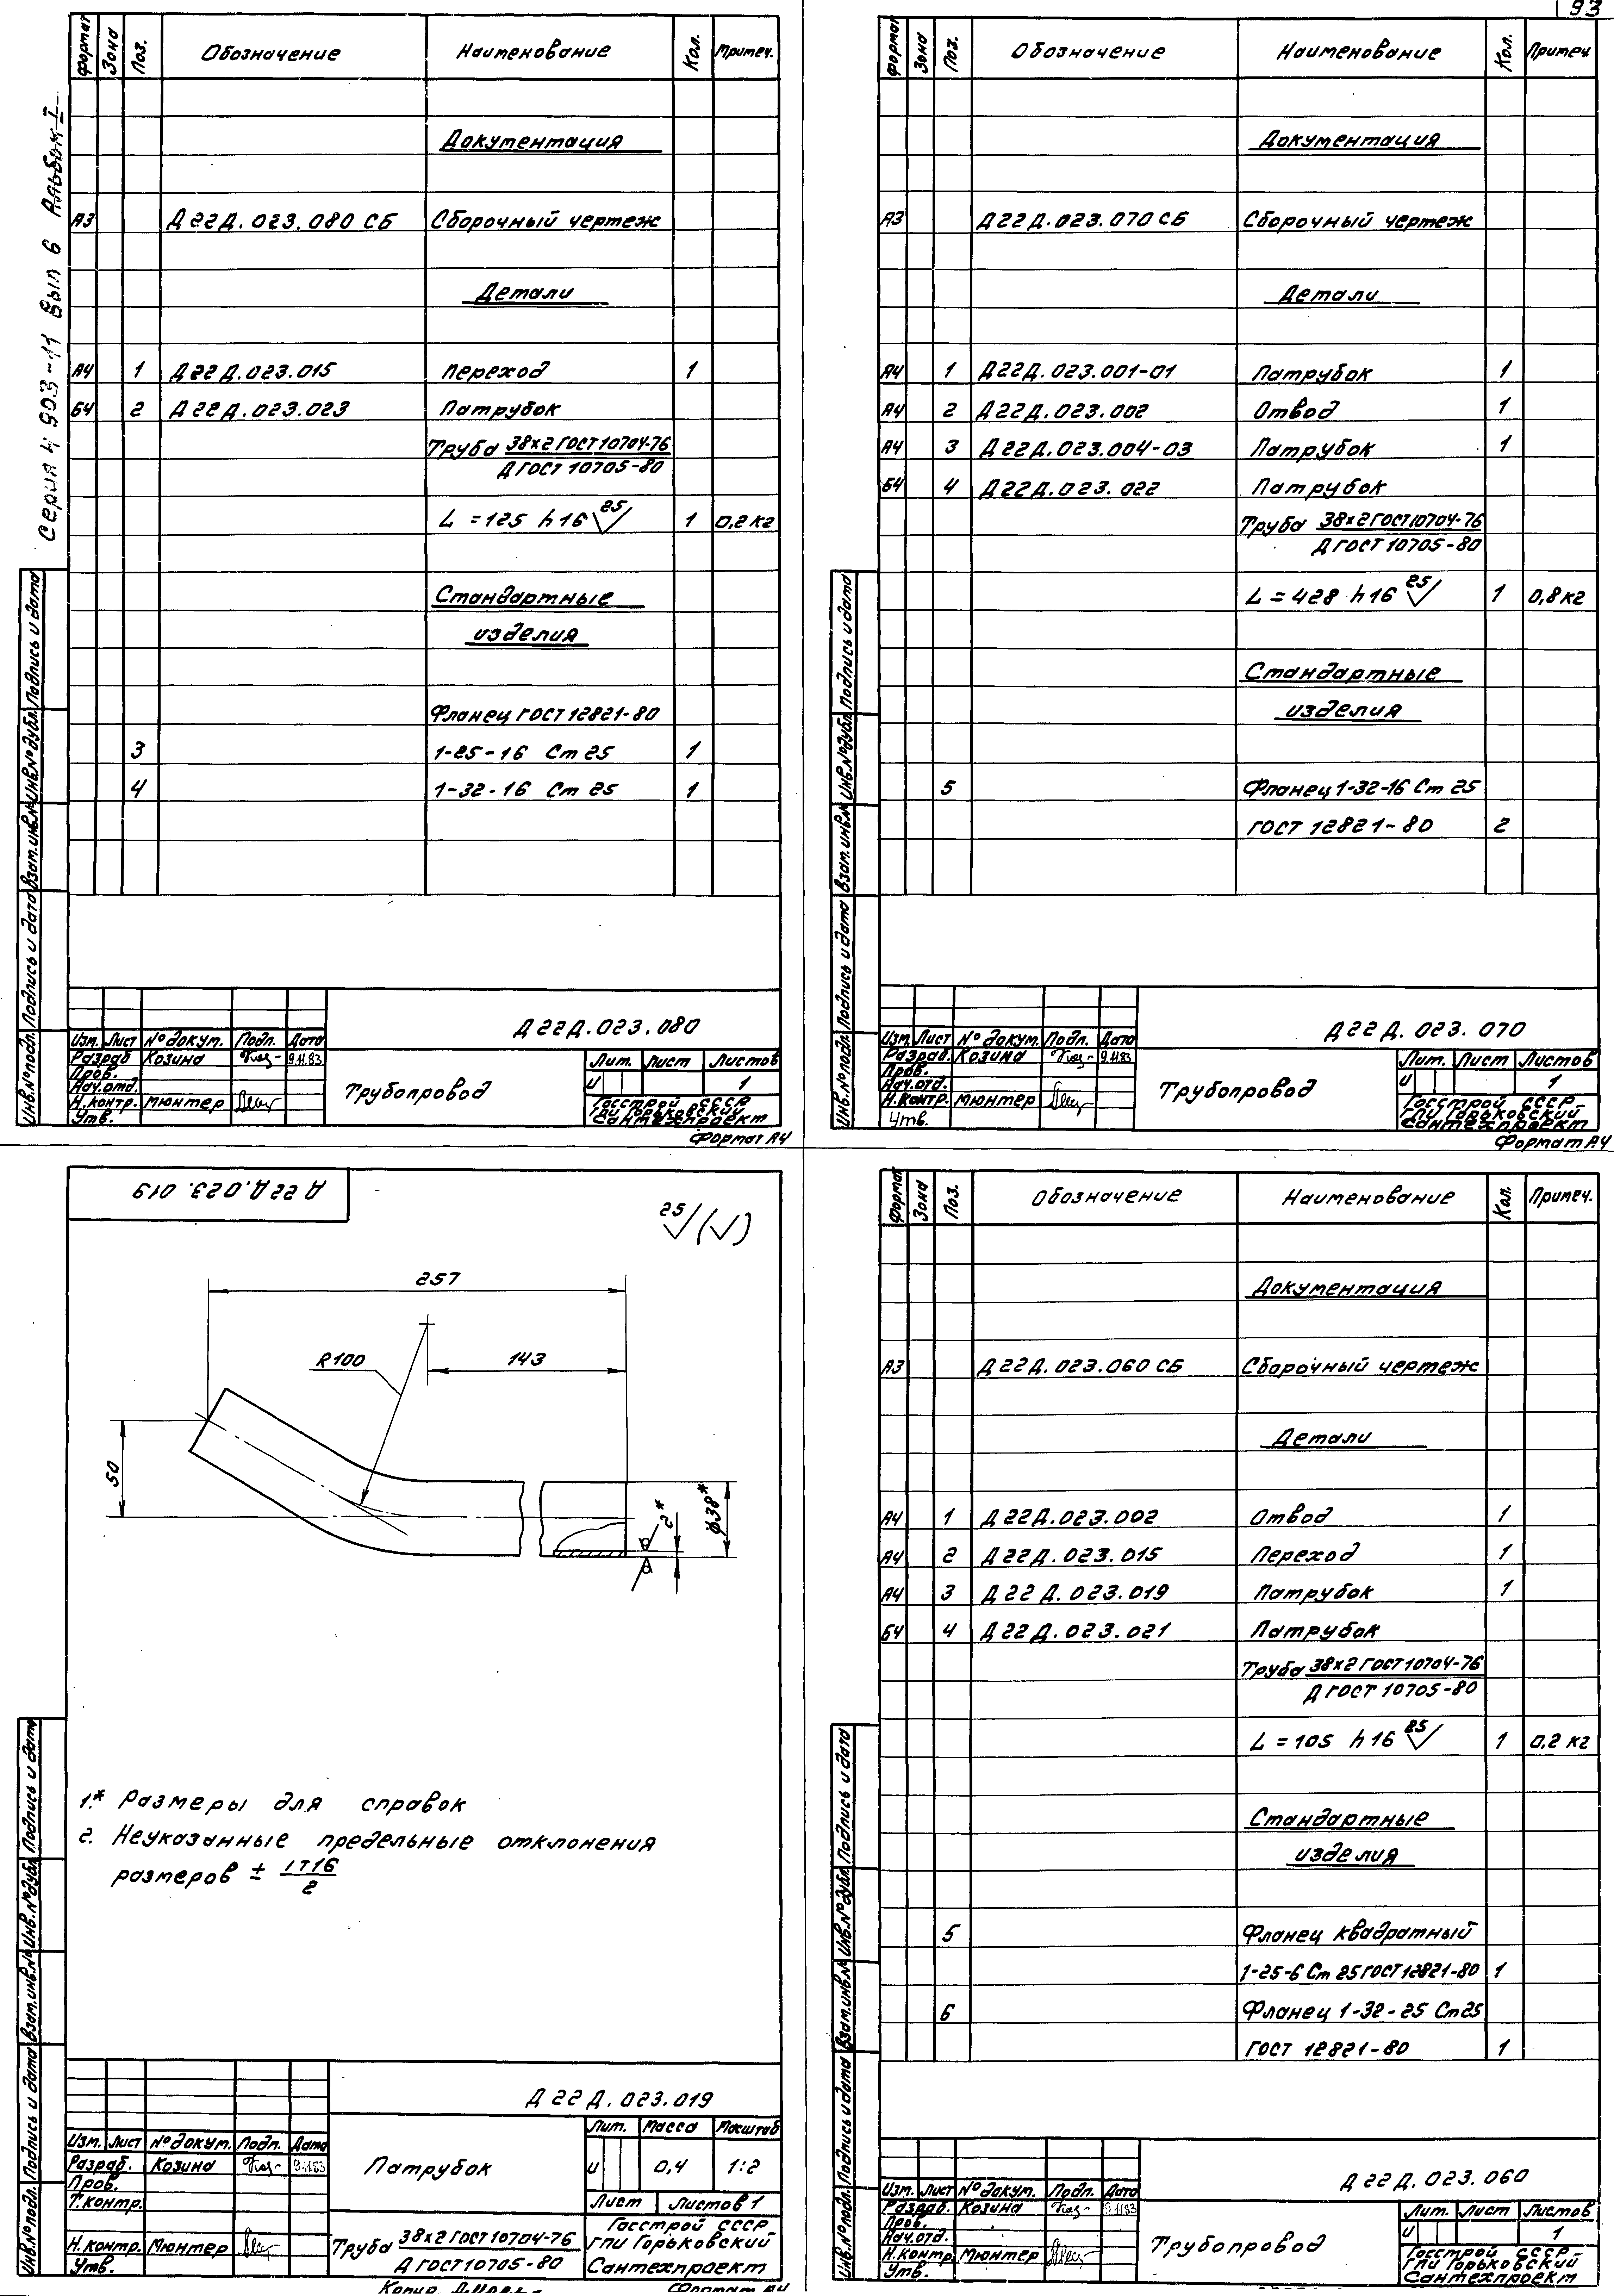 93
Серия 4 903-11 Вып 6 Альбом I
Формат Зона Поз. Обозначение Наименование Кол. Примеч.
Документация
А3 Д22Д.023.080 СБ Сборочный чертеж
Детали
А4 1 Д22Д.023.015 Переход 1
Б4 2 Д22Д.023.023 Патрубок
Труба 38×2 ГОСТ 10704-76
Д ГОСТ 10705-80
L = 125 h16 25 1 0,2 кг
Стандартные
изделия
Фланец ГОСТ 12821-80
3 1-25-16 Ст 25 1
4 1-32-16 Ст 25 1
Инв.№подл. Подпись и дата Взам.инв.№ Инв.№дубл. Подпись и дата
Д22Д.023.080
Изм. Лист №докум. Подп. Дата
Разраб. Козина 9.11.83
Пров.
Нач.отд.
Н.контр. Мюнтер
Утв.
Трубопровод
Лит. Лист Листов
И 1
Госстрой СССР
ГПИ Горьковский
Сантехпроект
Формат А4
Формат Зона Поз. Обозначение Наименование Кол. Примеч.
Документация
А3 Д22Д.023.070 СБ Сборочный чертеж
Детали
А4 1 Д22Д.023.001-01 Патрубок 1
А4 2 Д22Д.023.002 Отвод 1
А4 3 Д22Д.023.004-03 Патрубок 1
Б4 4 Д22Д.023.022 Патрубок
Труба 38×2 ГОСТ 10704-76
Д ГОСТ 10705-80
L = 428 h16 25 1 0,8 кг
Стандартные
изделия
5 Фланец 1-32-16 Ст 25
ГОСТ 12821-80 2
Инв.№подл. Подпись и дата Взам.инв.№ Инв.№дубл. Подпись и дата
Д22Д.023.070
Изм. Лист №докум. Подп. Дата
Разраб. Козина 9.11.83
Пров.
Нач.отд.
Н.контр. Мюнтер
Утв.
Трубопровод
Лит. Лист Листов
И 1
Госстрой СССР
ГПИ Горьковский
Сантехпроект
Формат А4
Д22Д.023.019
25 √ (√)
257
R100
143
50
2*
φ38*
1.* Размеры для справок
2. Неуказанные предельные отклонения
размеров ± IT16/2
Инв.№подл. Подпись и дата Взам.инв.№ Инв.№дубл. Подпись и дата
Д22Д.023.019
Изм. Лист №докум. Подп. Дата
Разраб. Козина 9.11.83
Пров.
Т.контр.
Н.контр. Мюнтер
Утв.
Патрубок
Лит. Масса Масштаб
И 0,4 1:2
Лист Листов 1
Труба 38×2 ГОСТ 10704-76
Д ГОСТ 10705-80
Госстрой СССР
ГПИ Горьковский
Сантехпроект
Формат А4
Формат Зона Поз. Обозначение Наименование Кол. Примеч.
Документация
А3 Д22Д.023.060 СБ Сборочный чертеж
Детали
А4 1 Д22Д.023.002 Отвод 1
А4 2 Д22Д.023.015 Переход 1
А4 3 Д22Д.023.019 Патрубок 1
Б4 4 Д22Д.023.021 Патрубок
Труба 38×2 ГОСТ 10704-76
Д ГОСТ 10705-80
L = 105 h16 25 1 0,2 кг
Стандартные
изделия
5 Фланец квадратный
1-25-6 Ст 25 ГОСТ 12821-80 1
6 Фланец 1-32-25 Ст25
ГОСТ 12821-80 1
Инв.№подл. Подпись и дата Взам.инв.№ Инв.№дубл. Подпись и дата
Д22Д.023.060
Изм. Лист №докум. Подп. Дата
Разраб. Козина 9.11.83
Пров.
Нач.отд.
Н.контр. Мюнтер
Утв.
Трубопровод
Лит. Лист Листов
И 1
Госстрой СССР
ГПИ Горьковский
Сантехпроект